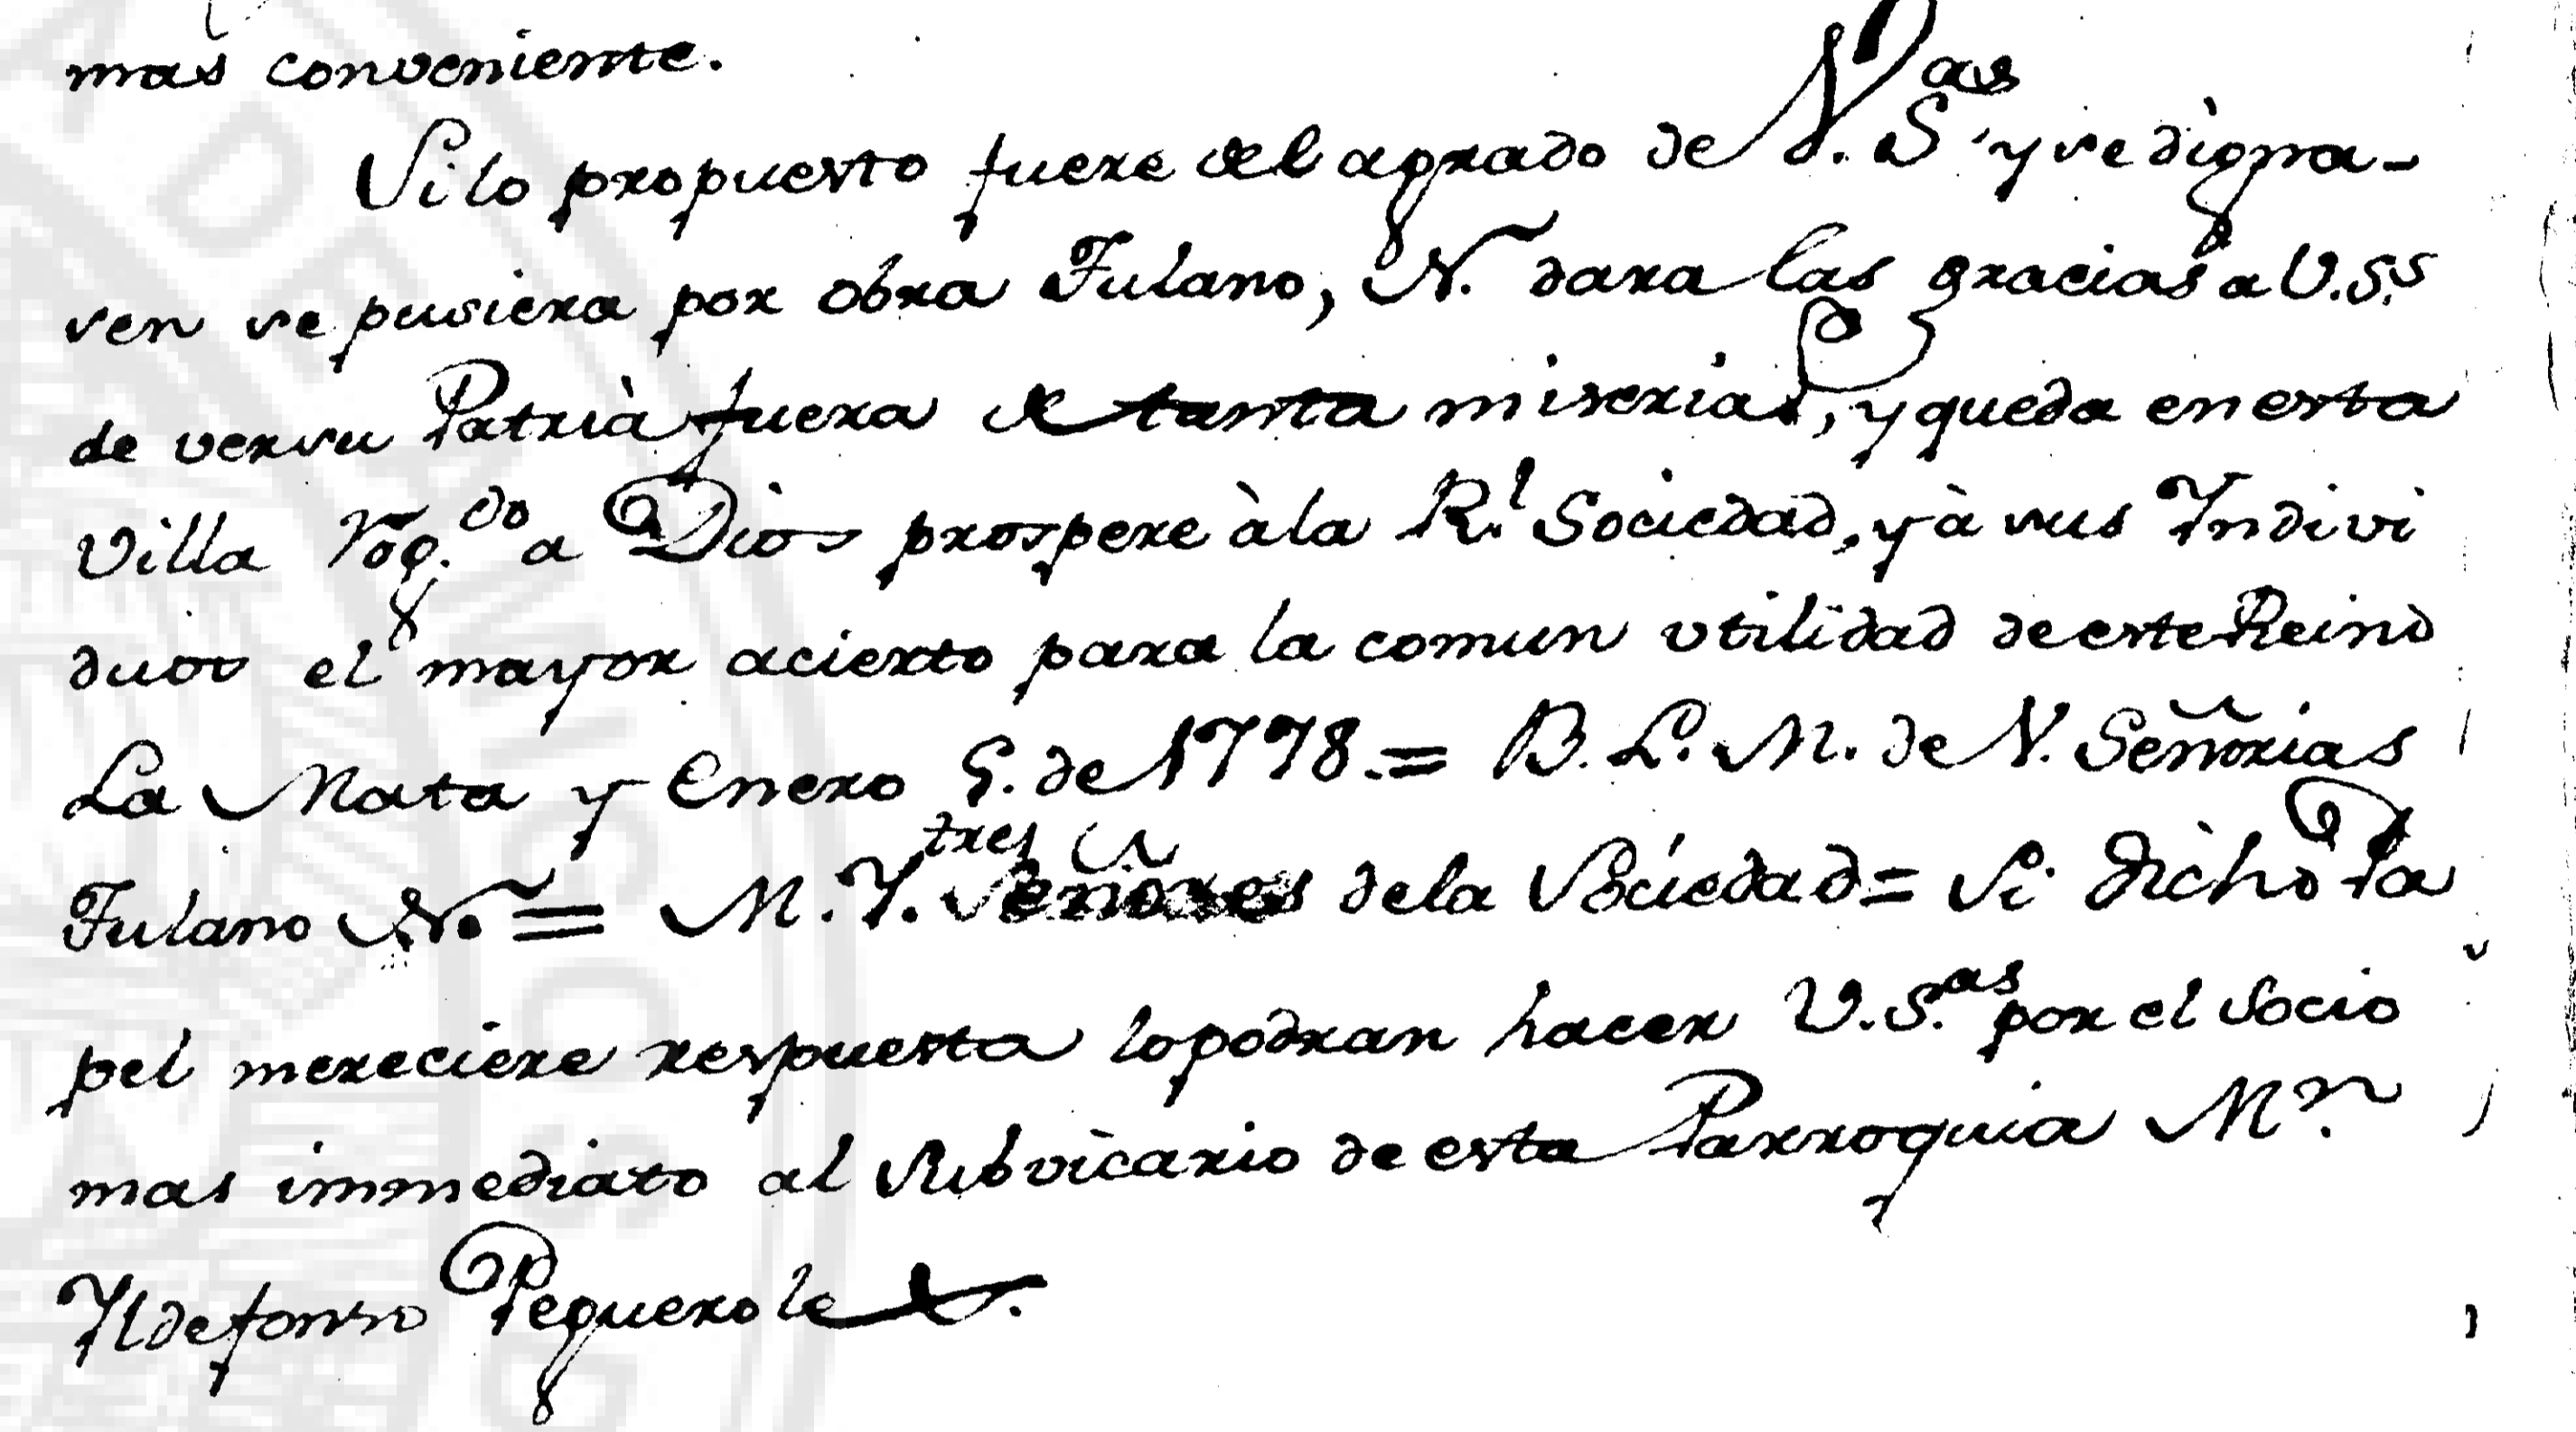 mas conveniente.
Si lo propuesto fuere del agrado de V. S.as y se digna-
sen se pusiera por obra Fulano, N. dara las gracias a V.S.s
de ver su Patria fuera de tanta miseria, y queda en esta
Villa Rog.do a Dios prospere à la R.l Sociedad, y à sus Indivi
duos el mayor acierto para la comun utilidad de este Reino
La Mata y Enero 5. de 1778.= B. L. M. de V. Señorias
Fulano N. = M. Y.tres Señores de la Sociedad = Si dicho Pa
pel mereciere respuesta lo podran hacer V.S.as por el Socio
mas immediato al Subvicario de esta Parroquia M.n
Ildefonso Pequerole.